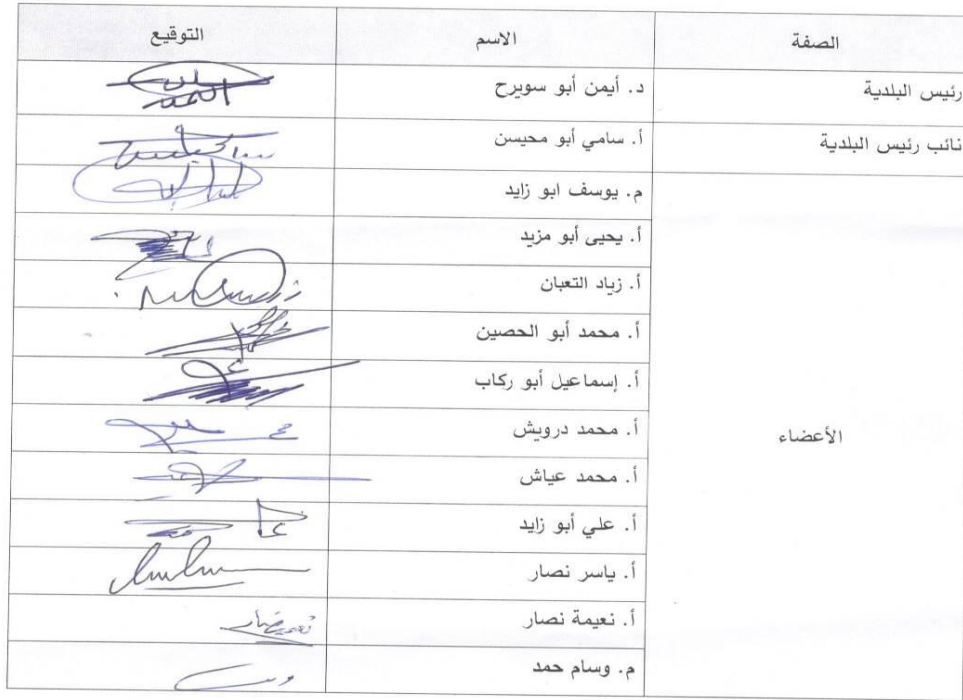 الصفة الاسم التوقيع
رئيس البلدية د. أيمن أبو سويرح
نائب رئيس البلدية أ. سامي أبو محيسن
م. يوسف ابو زايد
أ. يحيى أبو مزيد
أ. زياد التعبان
أ. محمد أبو الحصين
أ. إسماعيل أبو ركاب
الأعضاء أ. محمد درويش
أ. محمد عياش
أ. علي أبو زايد
أ. ياسر نصار
أ. نعيمة نصار نعيمة نصار
م. وسام حمد